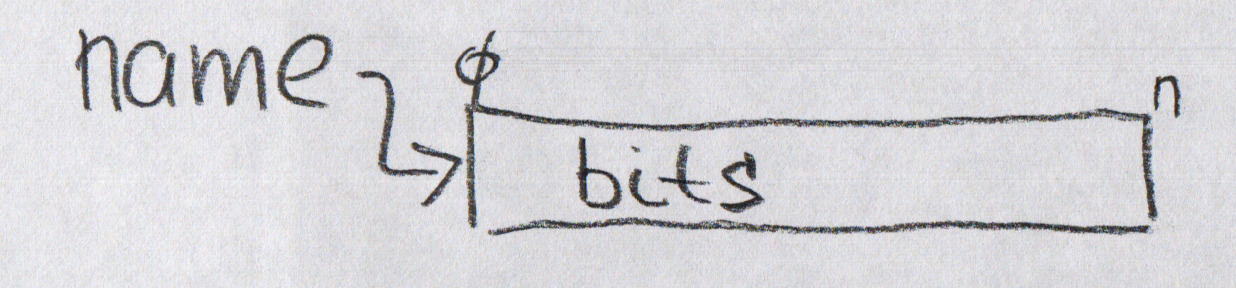 name
ϕ n
bits